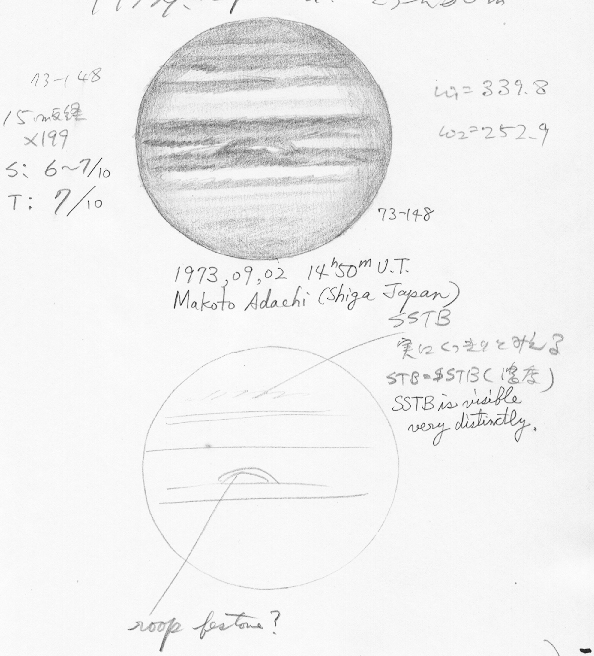 73-148
15cm反径
×199
S: 6~7/10
T: 7/10
ω1=339.8
ω2=252.9
73-148
1973,09,02 14h50m U.T.
Makoto Adachi (Shiga Japan)
SSTB
実にくっきりとみえる
STB=SSTB(濃度)
SSTB is visible
very distinctly.
roop festone?